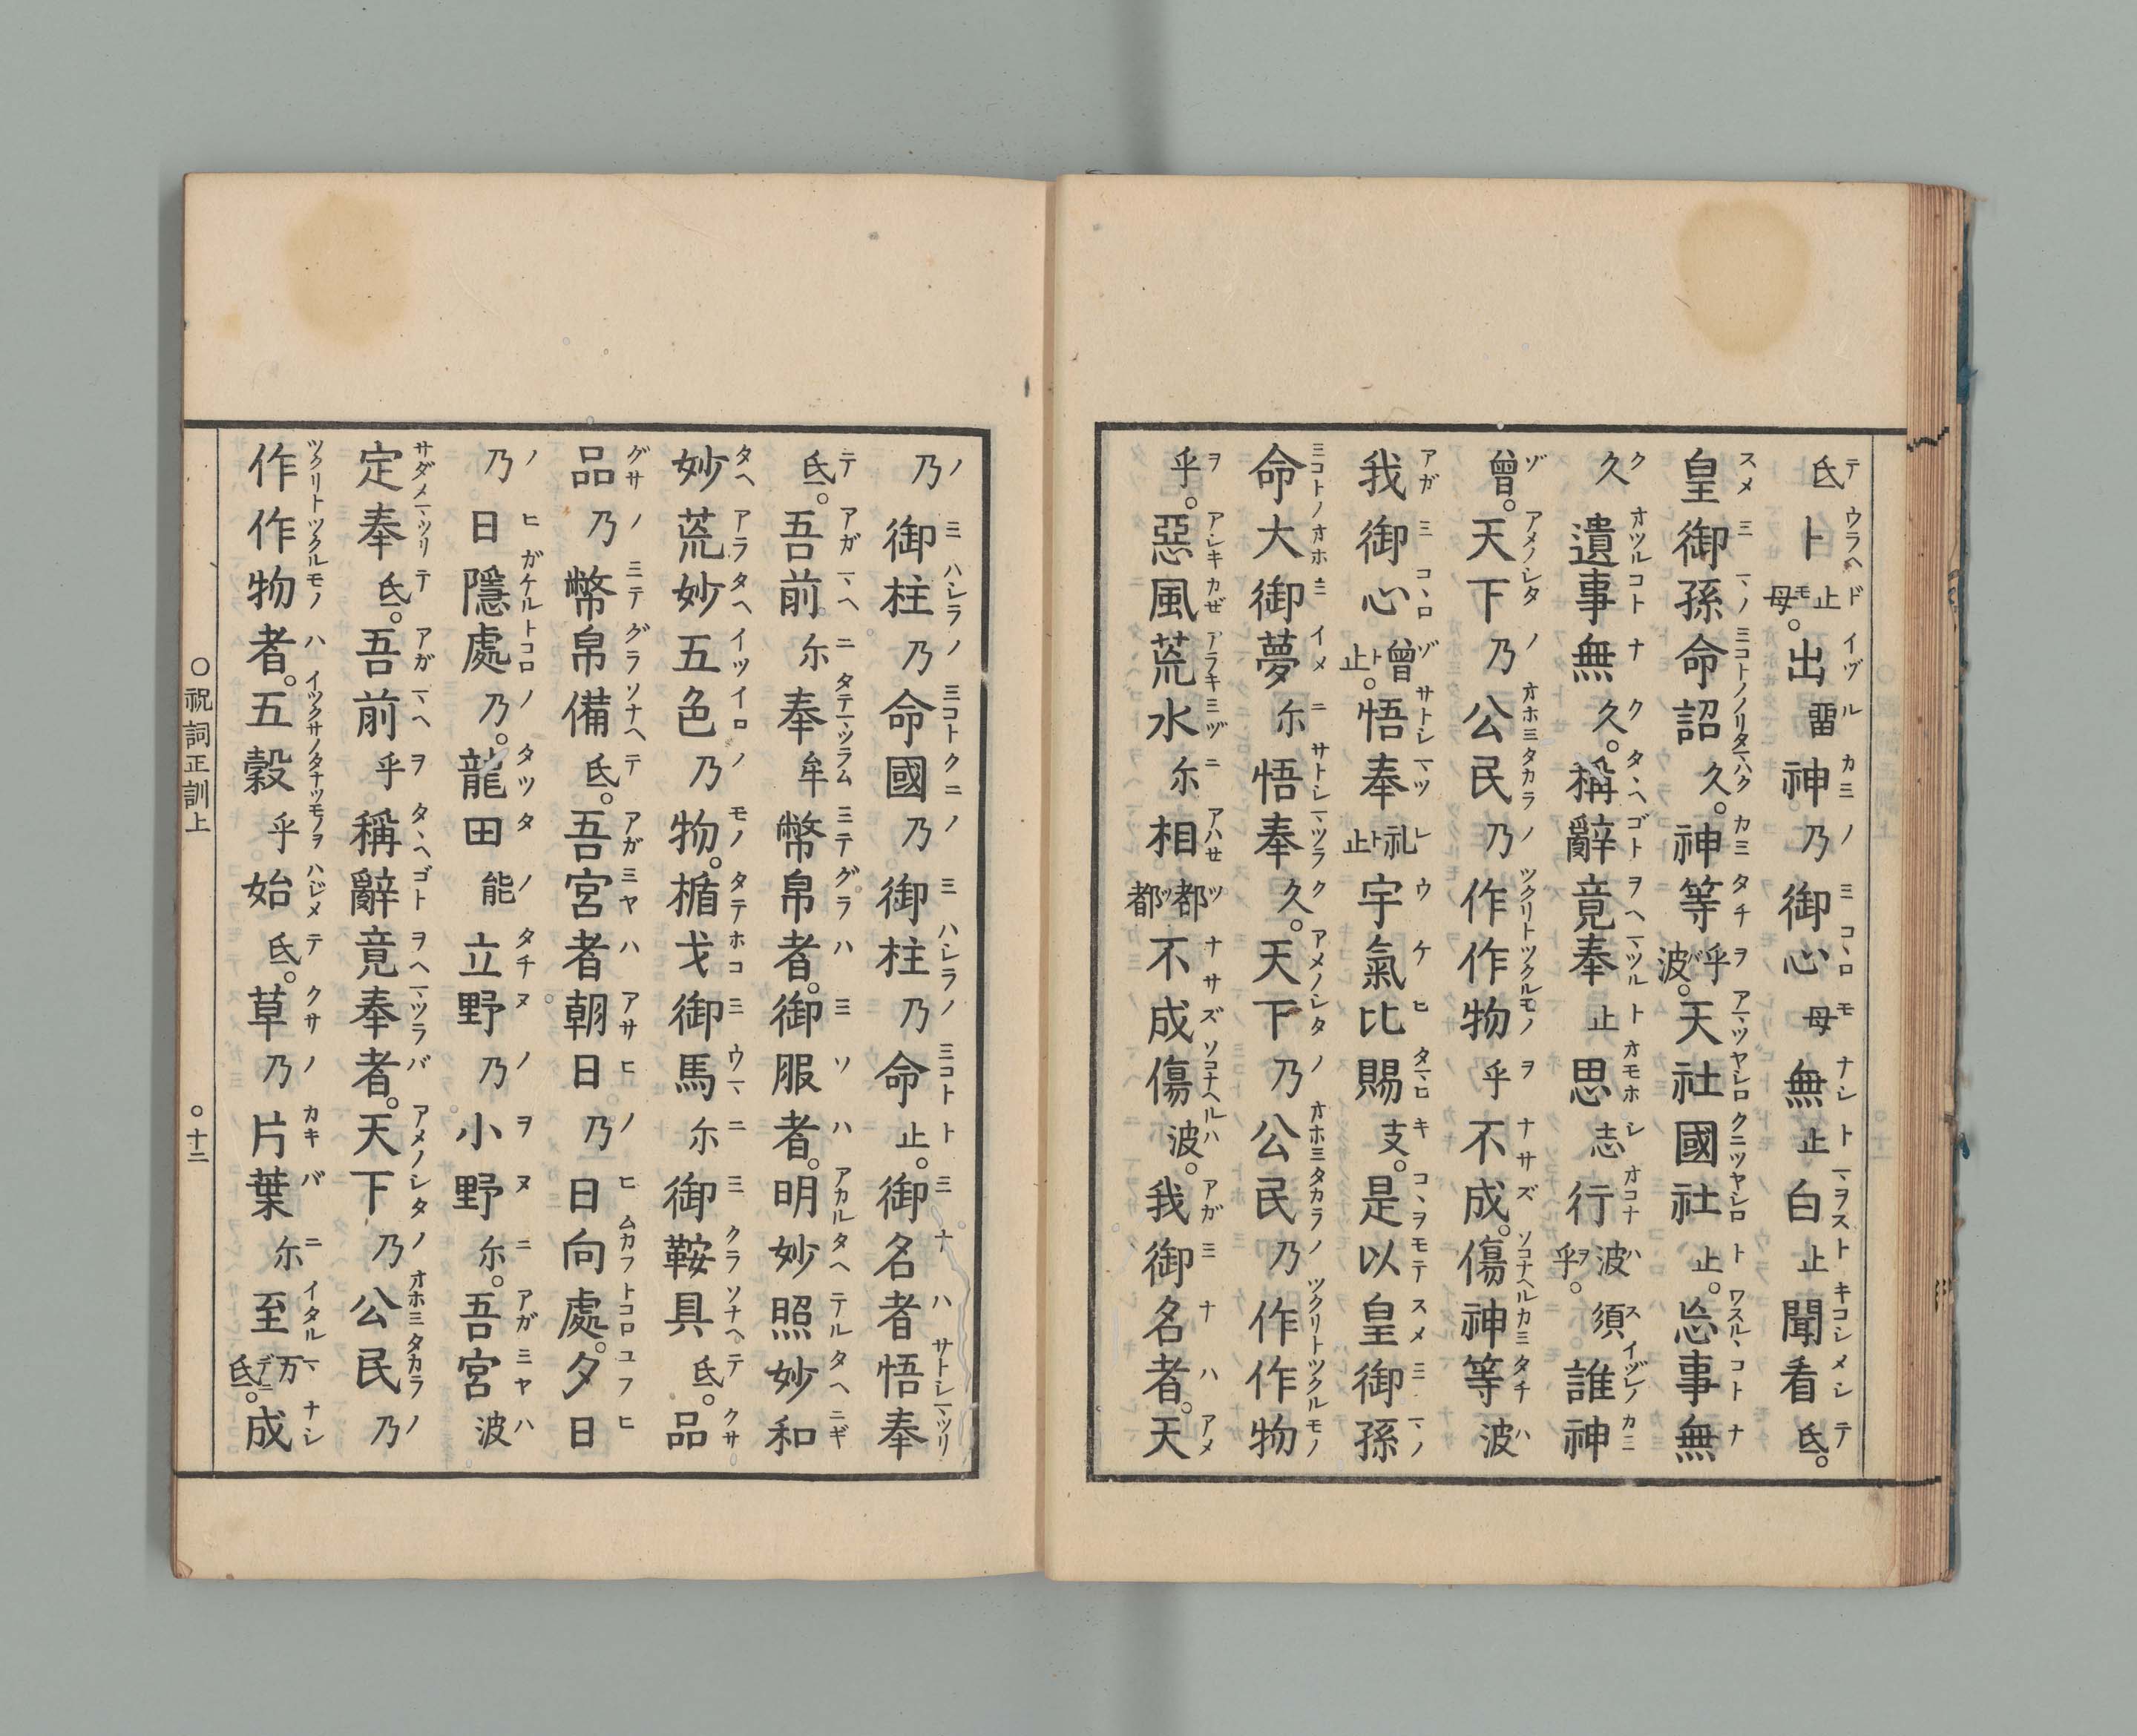 氐卜止母。出留神乃御心母無止白止聞看氐。
皇御孫命詔久。神等乎波。天社國社止。忘事無
久遺事無久。稱辭竟奉止思志行波乎。須誰神
曾。天下乃公民乃作作物乎不成。傷神等波
我御心曾止。悟奉礼止宇氣比賜支。是以皇御孫
命大御夢尓悟奉久。天下乃公民乃作作物
乎。惡風荒水尓相都都不成傷波。我御名者。天
乃御柱乃命國乃御柱乃命止。御名者悟奉
氐。吾前尓奉牟幣帛者。御服者。明妙照妙和
妙荒妙五色乃物。楯戈御馬尓御鞍具氐。品
品乃幣帛備氐。吾宮者朝日乃日向處。夕日
乃日隱處乃。龍田能立野乃小野尓。吾宮波
定奉氐。吾前乎稱辭竟奉者。天下乃公民乃
作作物者。五穀乎始氐。草乃片葉尓至万氐。成
○祝詞正訓上 ○十二